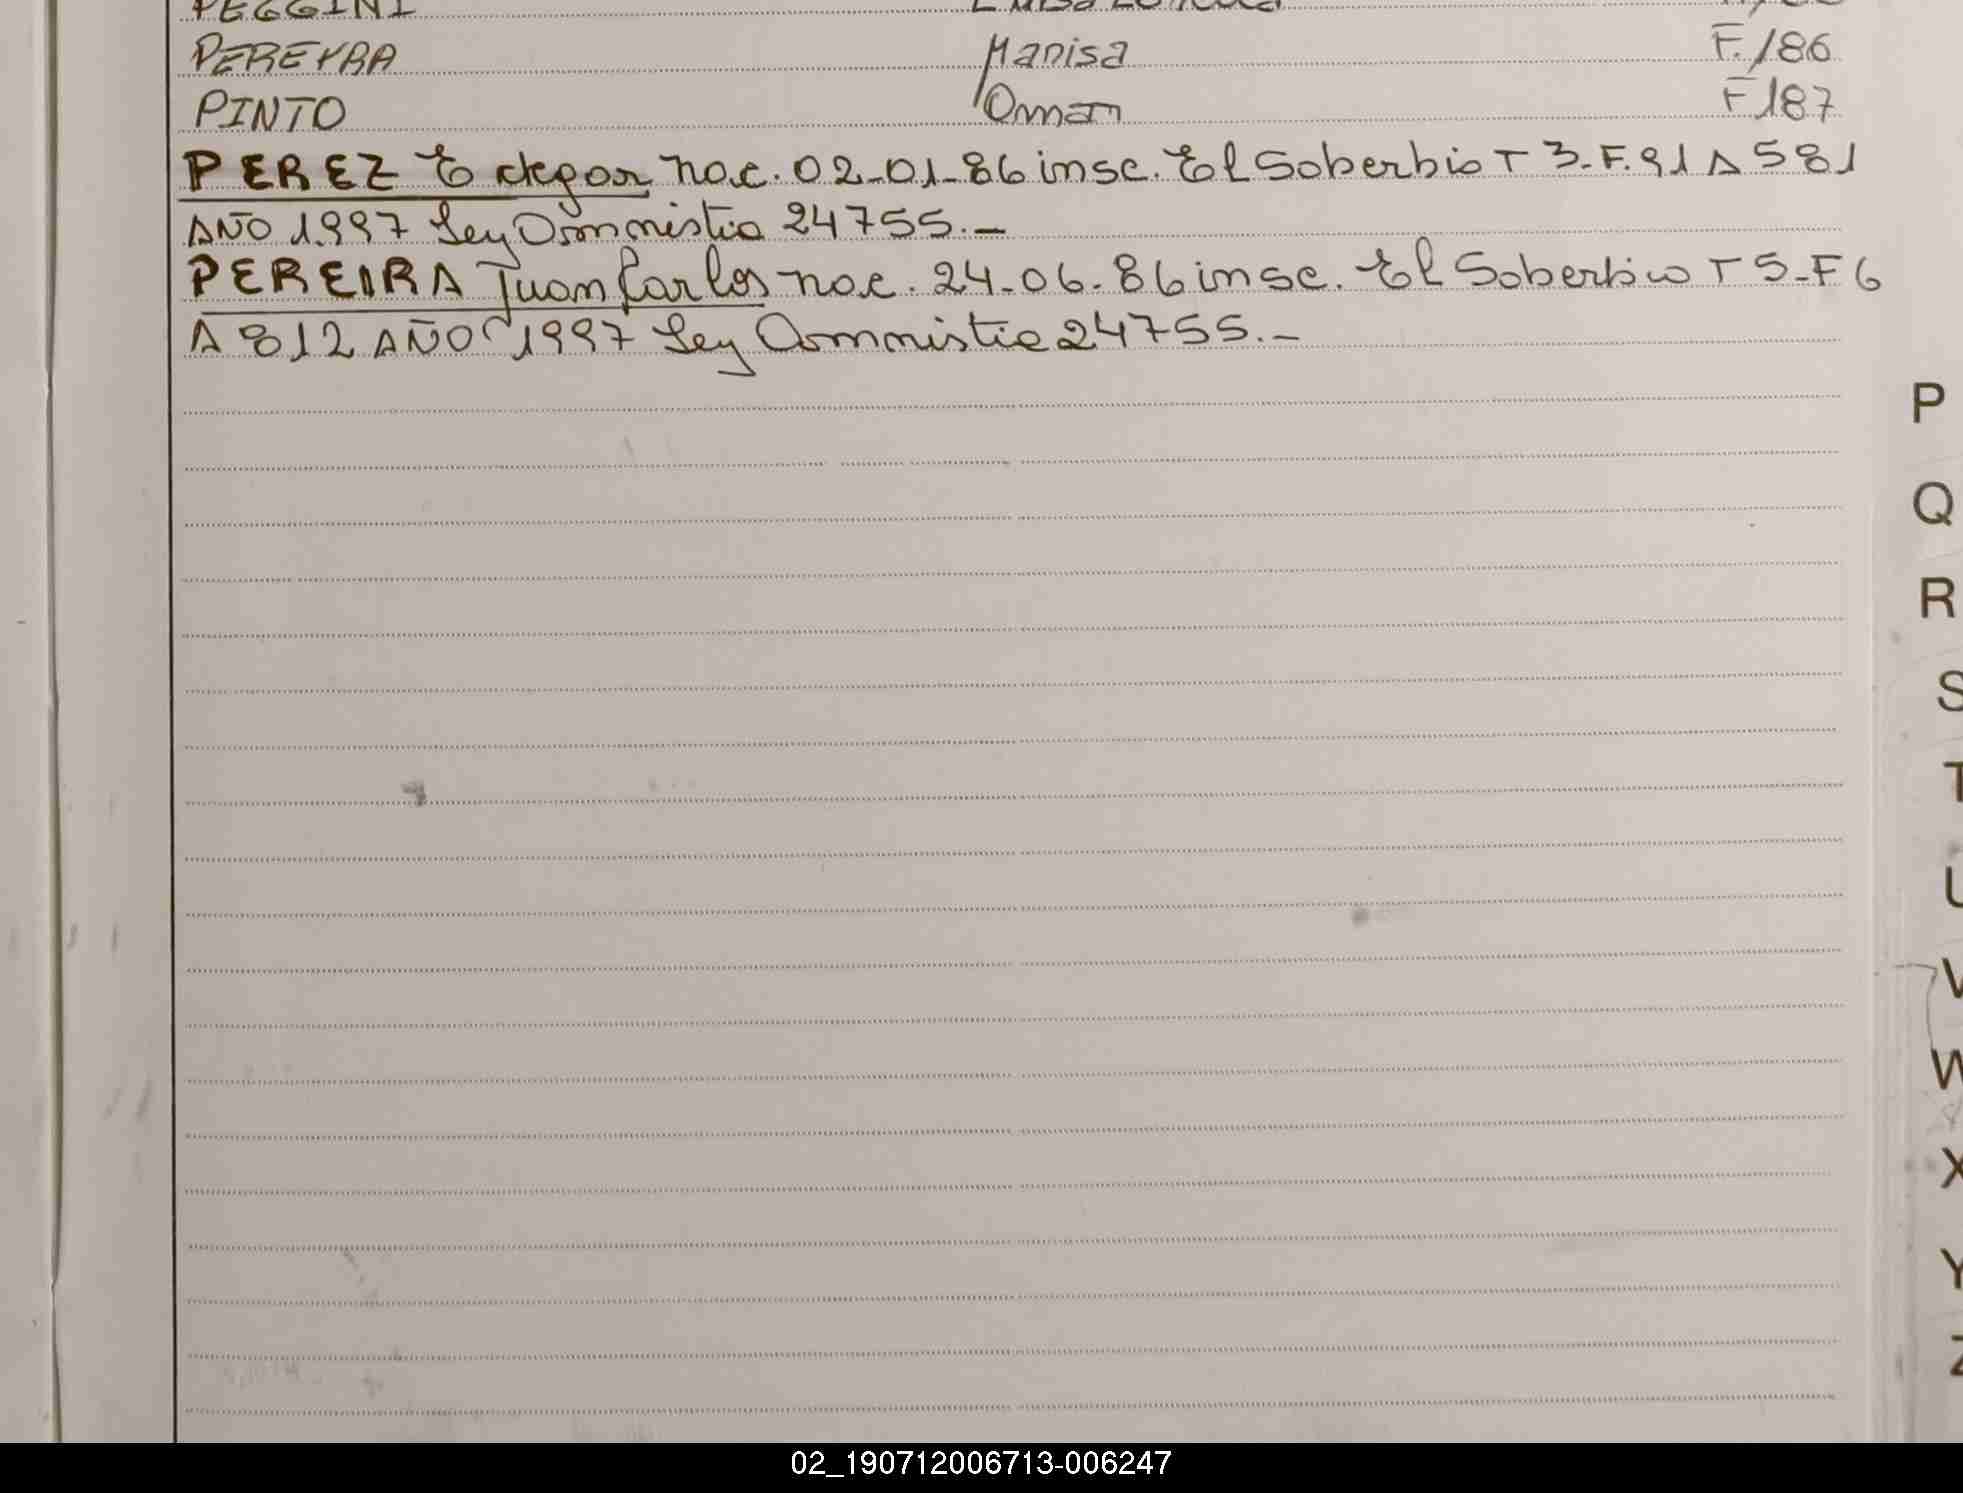 PEGGINI
PEREYRA Marisa F./86
PINTO Omar F 187
PEREZ Edegar nac. 02-01-86 insc. El Soberbio T 3-F.91 A 581
AÑO 1997 Ley Ammistia 24755.-
PEREIRA Juan Carlos nac. 24-06-86 insc. El Soberbio T 5-F 6
A 812 AÑO 1997 Ley Ammistia 24755.-
P
Q
R
S
T
U
V
W
X
Y
Z
02_190712006713-006247